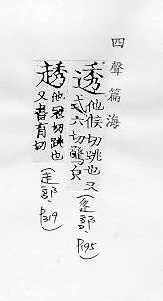 四聲篇海
透 他候切跳也又
式六切驚皃 (辵部 P.195)
他寇切跳也
又書育切 (走部 P.319)